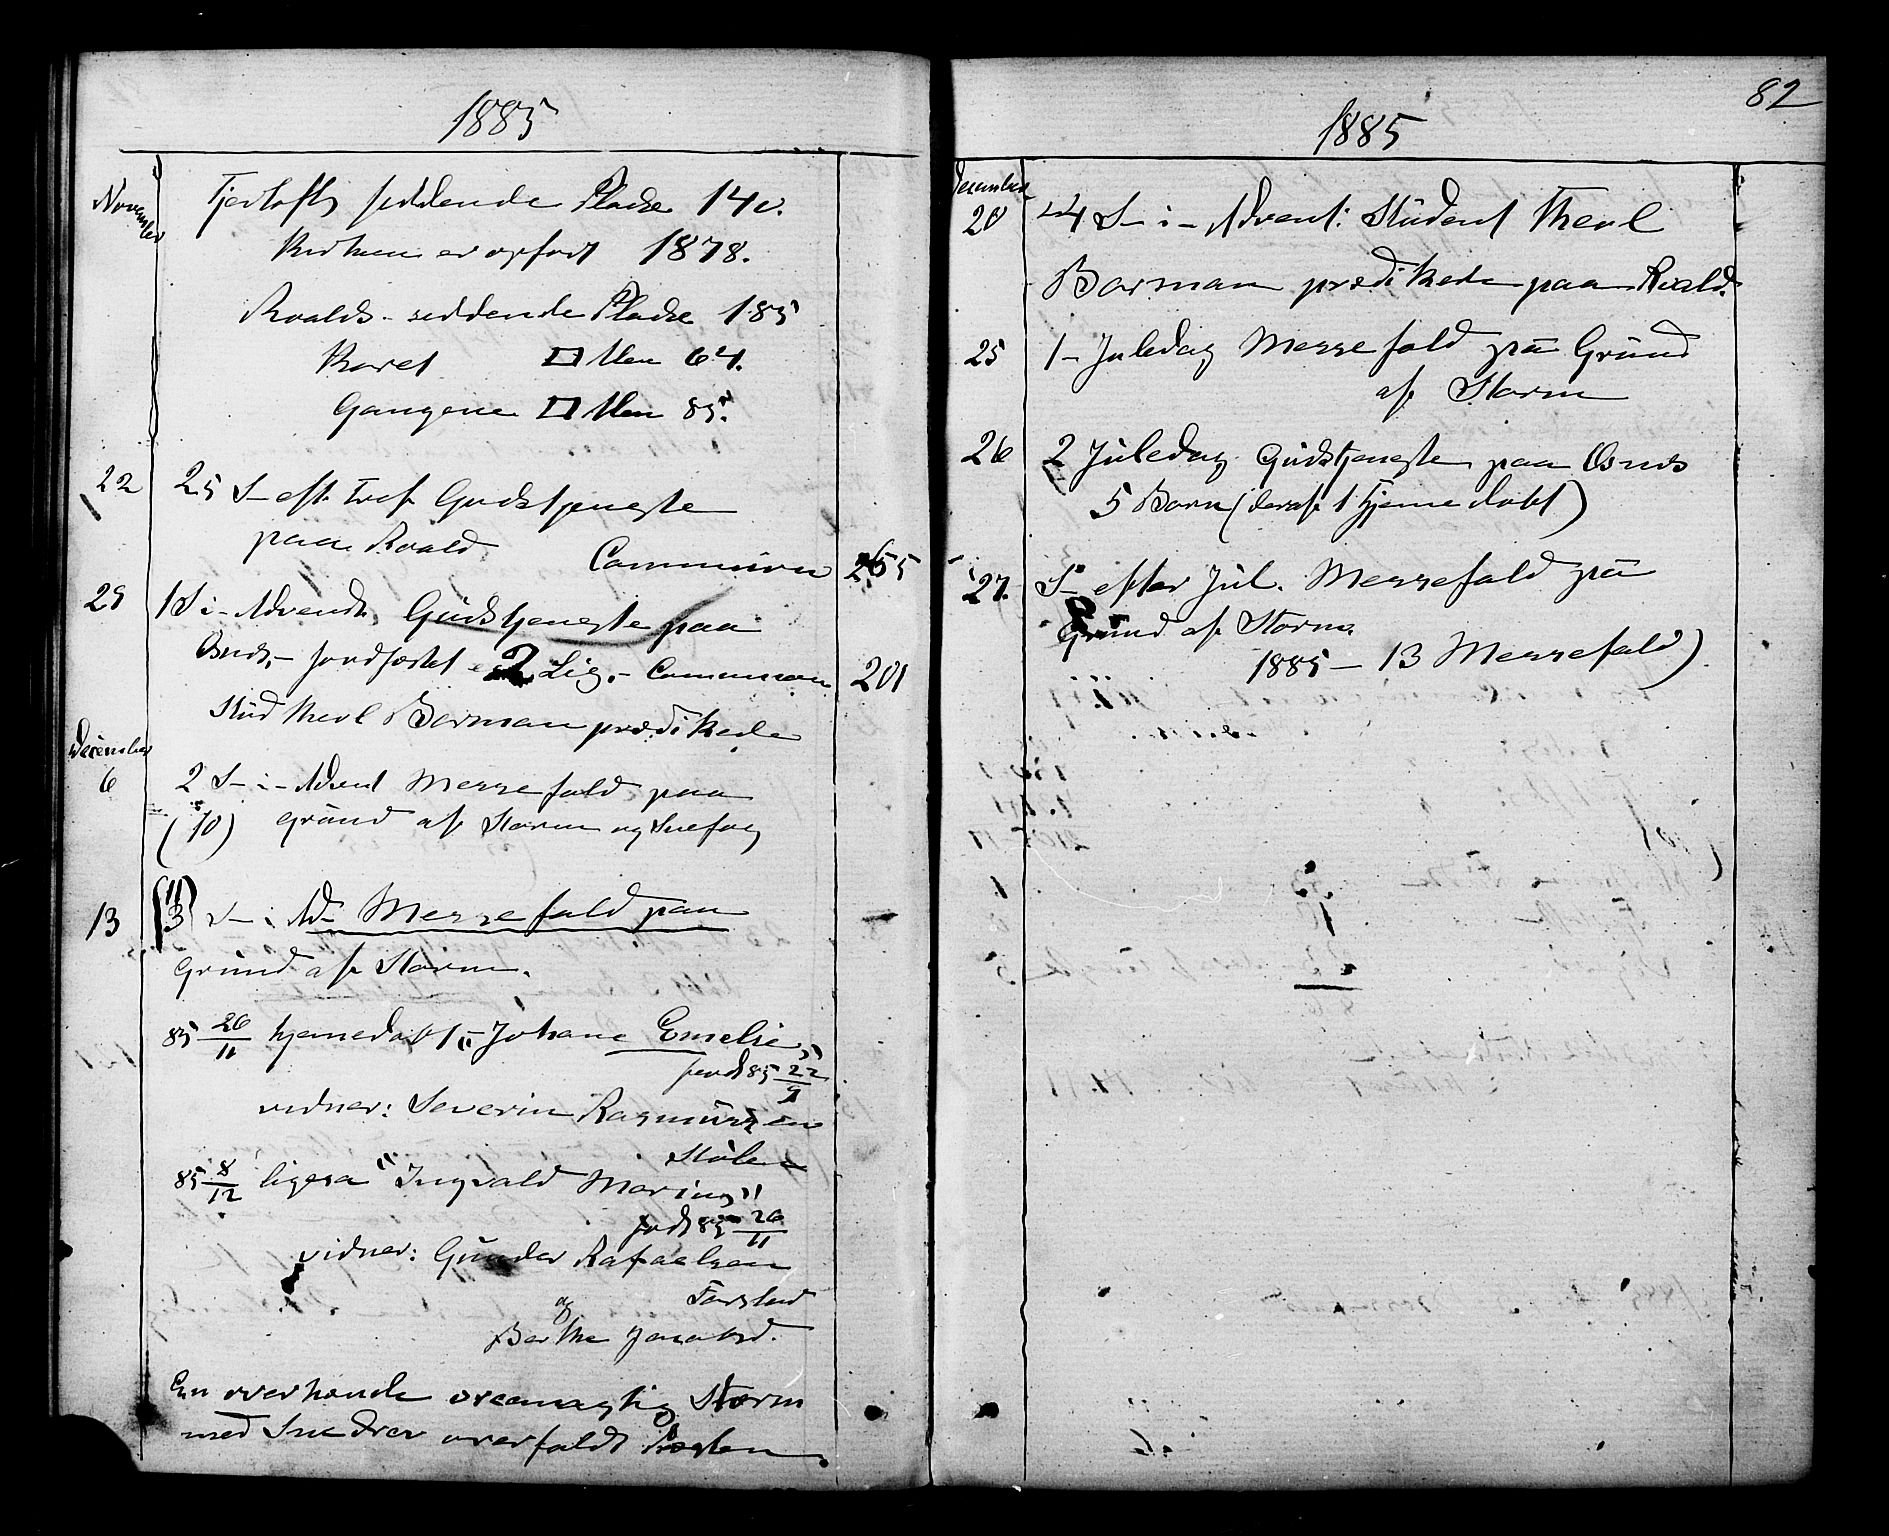 1885
November
Fjertofts siddende Pladse 140.
Kirken er opført 1878.
Roalds - siddende Pladse 185
Koret □ Alen 64.
Gangene □ Alen 85.
22 25 S- eft Tref. Gudstjeneste
paa Roald
Communion 255
29 1 S i- Advendt, Gudstjeneste paa
Osnds,- Jordfæstet 2 Lig,- Communion 201
Stud theol Borman prædikede
December
6 2 S- i- Advent Messefald paa
(10) Grund af Storm og Snefog
13 (11) 3 S- i Ad- Messefald paa
Grund af Storm.
85 26/11 hjemedøbt "Johane Emelie"
født 85 22/9
vidner: Severin Rasmussen
Stølen
85 8/12 ligesa "Ingvald Marius"
født 85 26/11
vidner: Gunder Rafaelsen
og Farstad
Berthe Jonebsd.
En overhænde oreamagtig Storm
med Snedrev overfaldt Kysten.
82
1885
December
20 4 S- i- Advent: Student Theol
Borman prædikede paa Roald.
25 1- Juledag Messefald på Grund
af Storm
26 2 Juledag Gudstjeneste paa Osnds
5 Børn (deraf 1 Hjemedøbt)
27. S- efter Jul. Messefald på
Grund af Storm.
1885 - 13 Messefald)